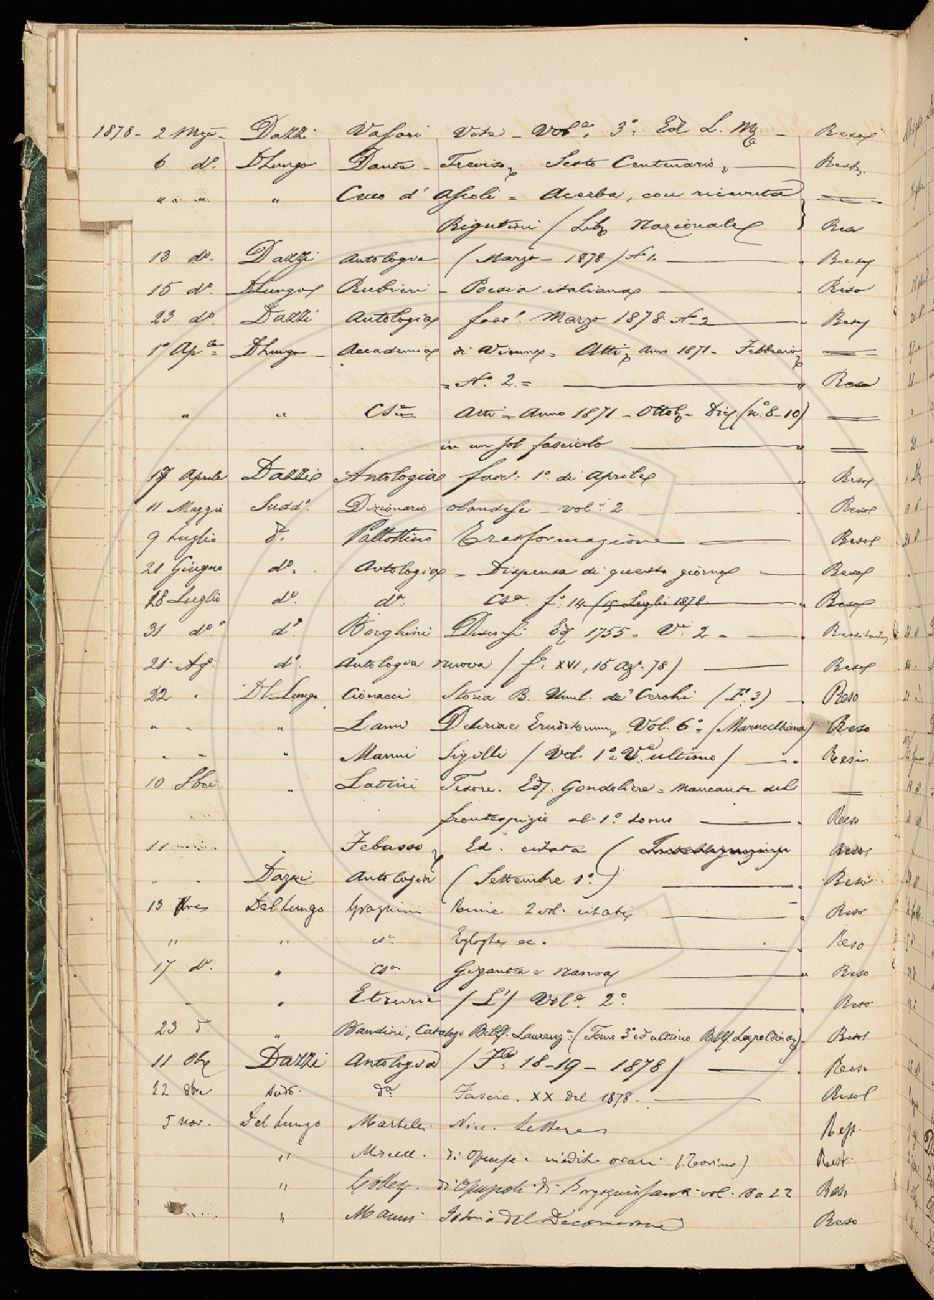 1878 - 2 Mzo - Dazzi Vasari Vite - Vol.e 3o Ed. L. M. - Reso
6 do. DLungo Dante - Treviso, Sesto Centenario, Resti
" " " " Cecco d' Ascoli = Acerba, con ricevuta
Rigutini / Lib. Nazionale Reso
13 do. Dazzi Antologia (Marzo - 1878) No 1. Reso
15 do. DLungo Rubieri - Poesia italiana Reso
23 do. Dazzi Antologia fasc. Marzo 1878 No 2 Reso
1o Ap.le DLungo - Accademia di Vienna = Atti, Ann 1871 - Febbraio
= No. 2. = Reso
" " Atti - Anno 1871 - Ottob. - Dic. (no. 8-10)
in un sol fascicolo
17 Aprile Dazzi Antologia fasc. 1o di Aprile Reso
11 Maggio Sudd.o Dizionario olandese - vol. 2 Reso
9 Luglio Pallottino Trasformazione Reso
21 Giugno do. Antologia = Dispensa di questo giorno Reso
28 Luglio do. da. fo. 14 (15 Luglio 1878 Reso
31 do. do. Borghini Discorsi Ed. 1755 - Ve. 2 -
21 Ag. do. Antologia nuova / fo. XVI, 15 Ago. 78 / Reso
22 " Del Lungo Cionacci Storia B. Umil. de' Cerchi (To. 3) Reso
" " Lami Deliciae Eruditorum, Vol. 6o = (Marucelliana) Reso
" " Manni Sigilli / Vol. 1o e Ve. ultimo / Resi
10 Sbre " Latini Tesoro. Ed. Gondoliere = mancante del
frontespizio al 1o tomo Reso
11 Febusso, Ed. citata ( Reso
" " Dazzi Antologia (Settembre 1o.) Reso
13 Del Lungo Grazzini Rime 2 vol. citati Reso
" " Egloghe ec. Reso
17 do. " Gigantea e Nanea Reso
" " Etruria / L' / Vol.e 2o Reso
23 do " Bandini, Catalogo Bibl. Laurenz.a (Tomo 3o ed ultimo Bibl. Leopoldina) Reso
11 Dazzi Antologia / Fo. 18-19 - 1878 / Reso
22 do. da Fascic. XX del 1878. Reso
5 nov. Del Lungo Martelli Nic. Lettere Rest.
" di Opusc. inediti o rari (Torino) Rest.
" Collez. di Opuscoli di Vol. 22 Resti
" Manni Istoria del Decamerone Reso